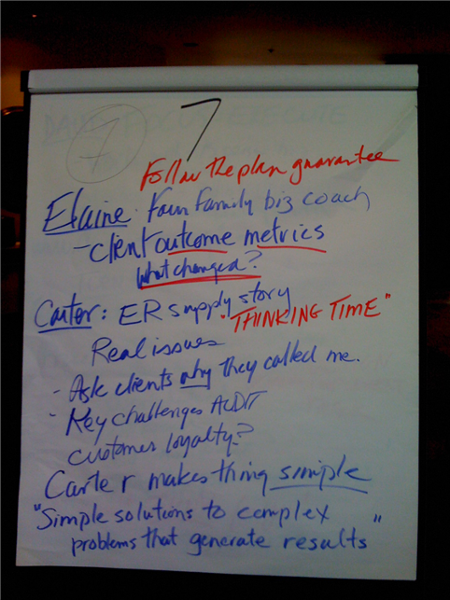 7
7
Follow the plan guarantee
Elaine: Farm Family biz coach
- client outcome metrics
What changed?
Carter: ER supply story
"THINKING TIME"
Real issues
- Ask clients why they called me.
- Key challenges AUDIT
customer loyalty?
Carter makes thing simple
"Simple solutions to complex
problems that generate results"